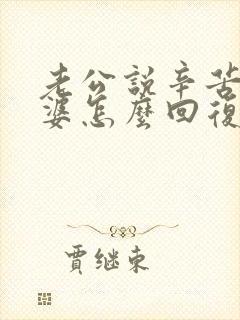 老公說辛苦
婆怎麼回復
賈继東